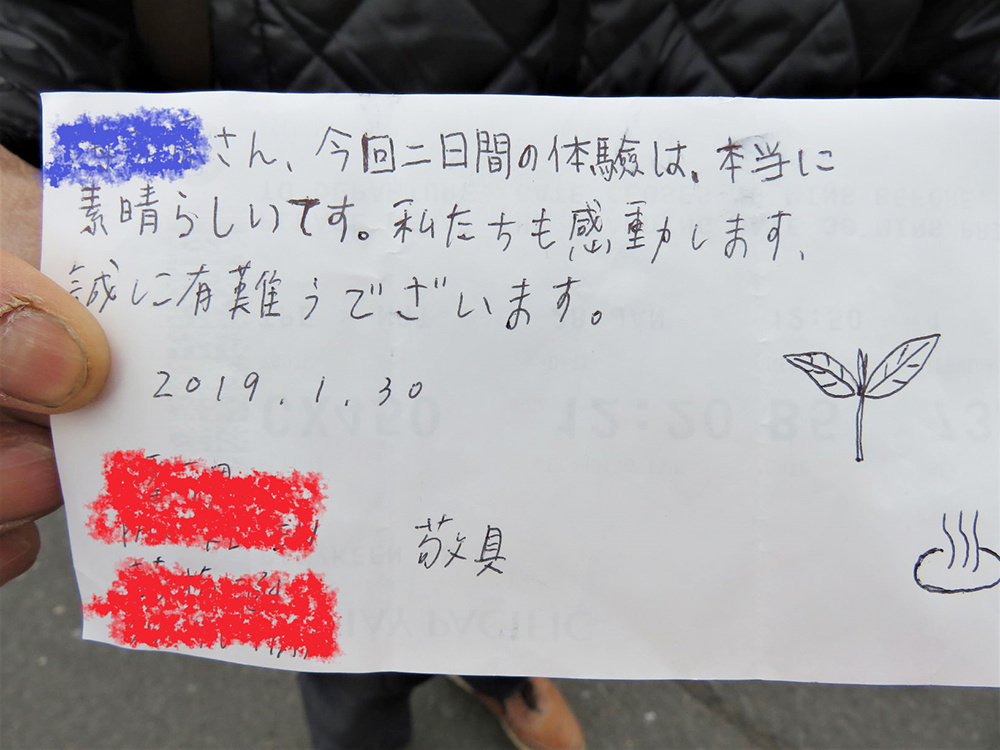 さん、今回二日間の体験は、本当に
素晴らしいてす。私たちも感動します、
誠に有難うございます。
2019.1.30
敬具